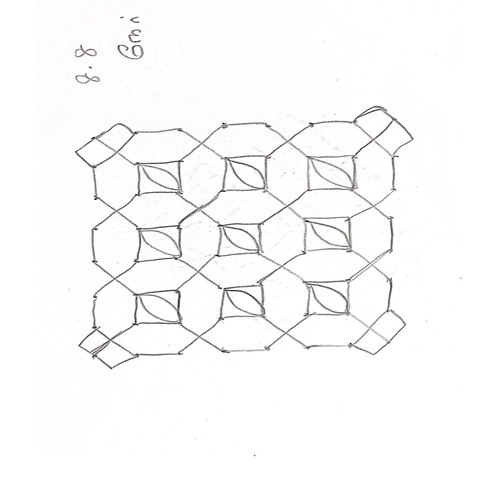 8.8
6min